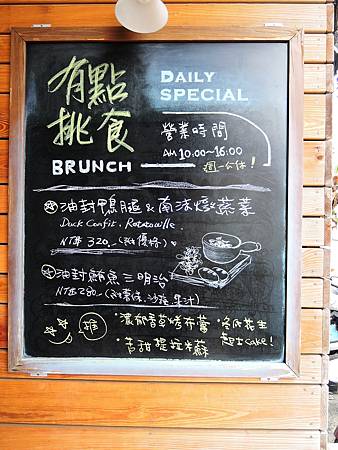 有點
挑食
BRUNCH
DAILY
SPECIAL
營業時間
AM 10:00~16:00
週一公休!
油封鴨腿 & 南法燉蔬菜
Duck Confit. Ratatouille
NT$ 320
油封鮪魚三明治
NT$ 280 (附薯條、沙拉、果汁)
推
·濃郁香草烤布蕾
·苦甜提拉米蘇
花生
起士cake!